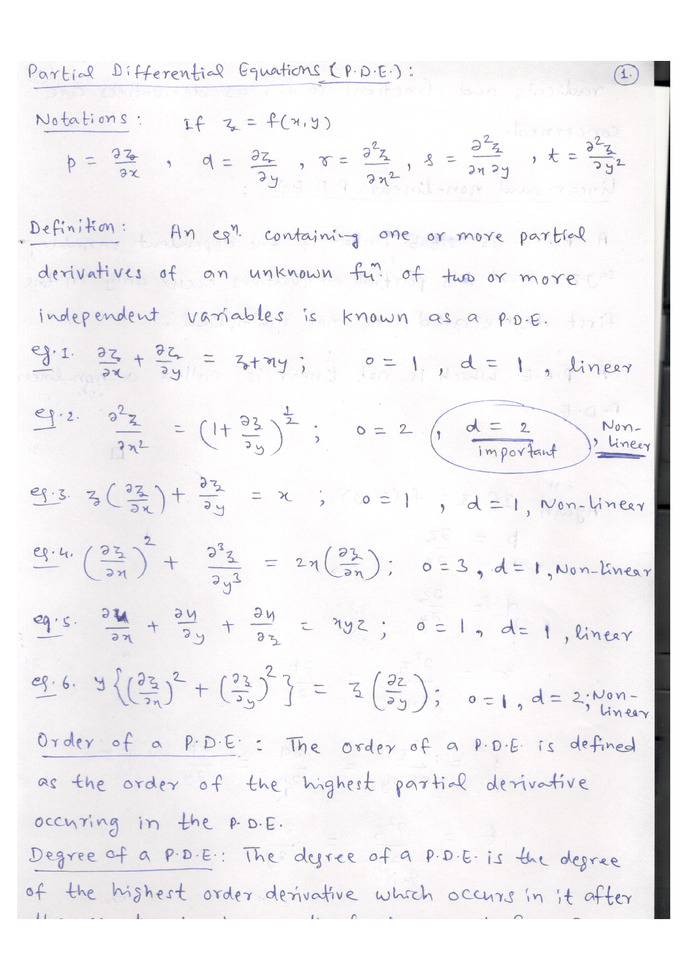 Partial Differential Equations (P.D.E.): 1.
Notations: If z = f(x,y)
p = ∂z/∂x , q = ∂z/∂y , r = ∂²z/∂x² , s = ∂²z/∂x∂y , t = ∂²z/∂y²
Definition: An eqⁿ. containing one or more partial
derivatives of an unknown fuⁿ. of two or more
independent variables is known as a P.D.E.
eg.1. ∂z/∂x + ∂z/∂y = z+xy ; o = 1 , d = 1 , linear
eg.2. ∂²z/∂x² = (1+ ∂z/∂y)^½ ; o = 2 , d = 2 important , Non-Linear
eg.3. z(∂z/∂x) + ∂z/∂y = x ; o = 1 , d = 1, Non-Linear
eg.4. (∂z/∂x)² + ∂³z/∂y³ = 2x(∂z/∂x); o = 3, d = 1, Non-Linear
eg.5. ∂u/∂x + ∂u/∂y + ∂u/∂z = xyz ; o = 1, d = 1, linear
eg.6. y{(∂z/∂x)² + (∂z/∂y)²} = z(∂z/∂y); o = 1, d = 2; Non-Linear
Order of a P.D.E. : The order of a P.D.E. is defined
as the order of the highest partial derivative
occuring in the P.D.E.
Degree of a P.D.E.: The degree of a P.D.E. is the degree
of the highest order derivative which occurs in it after